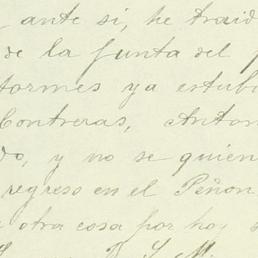 ante si, he traid
de la Junta del
formes ya estub
Contreras, Anton
do, y no se quien
regreso en el Peñon
otra cosa por hoy